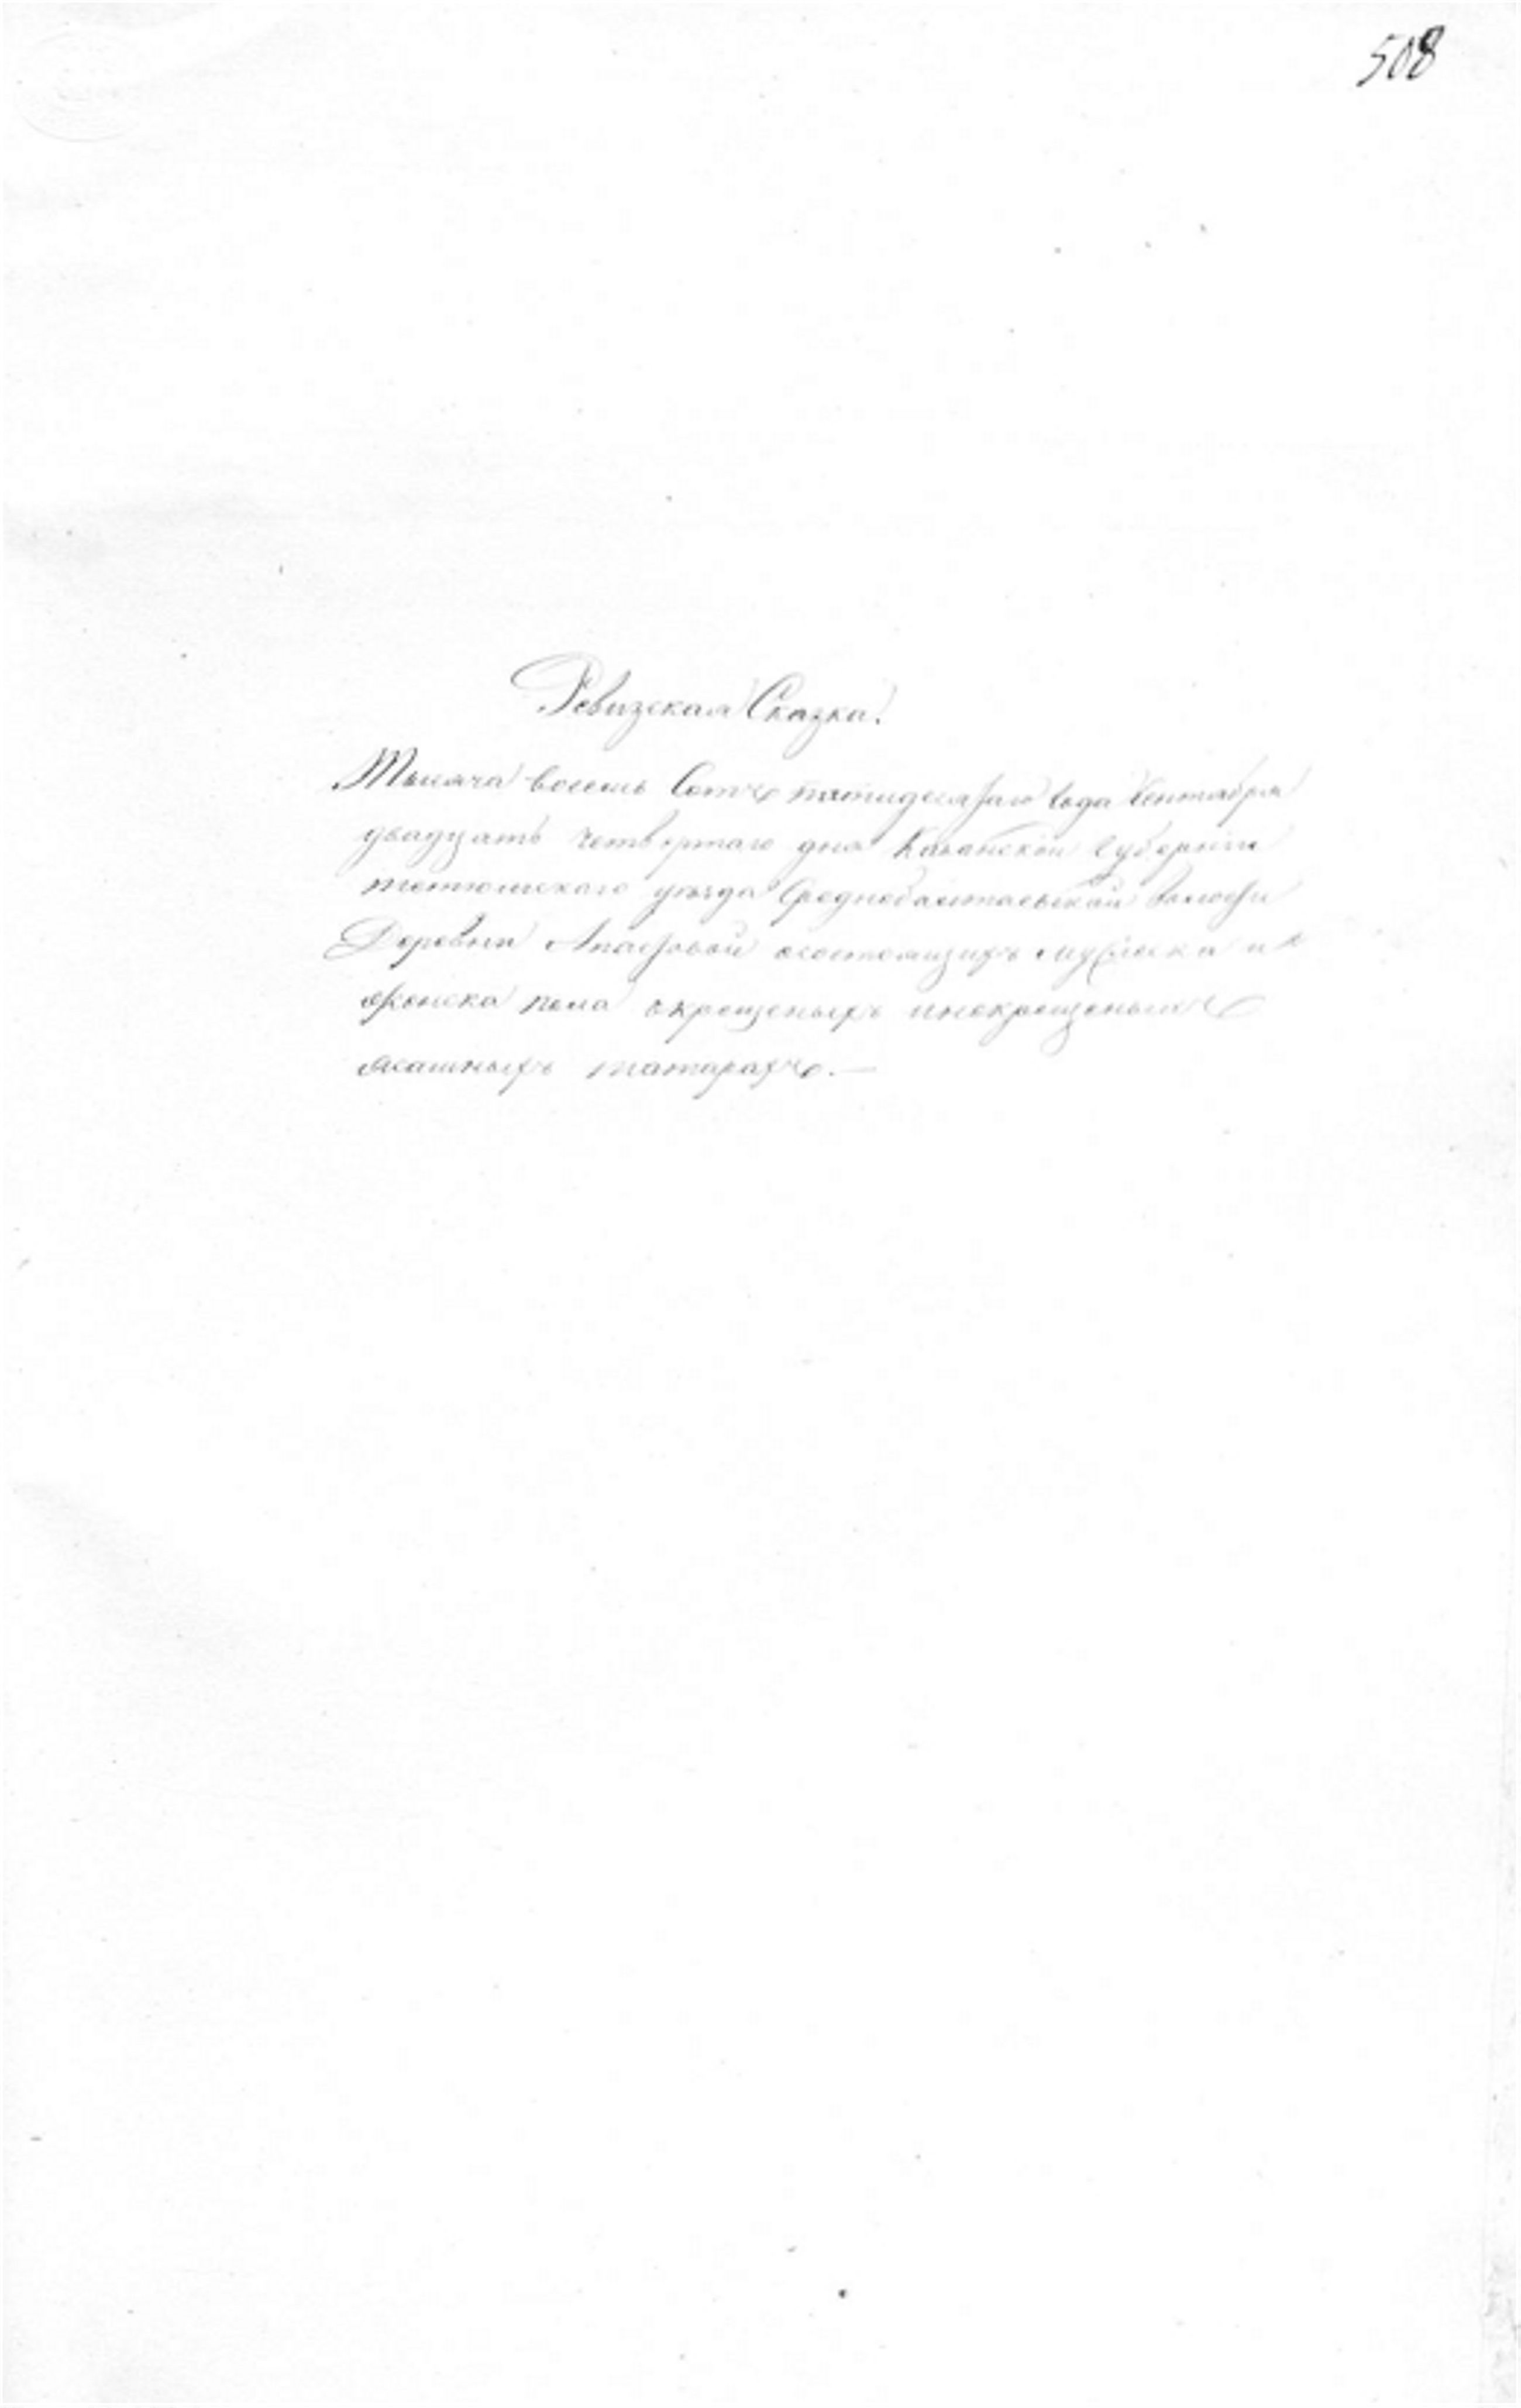 508
Ревизская Сказка.
Тысяча восемь Сотъ пятидесятаго года Сентября
двадцать четвертаго дня Казанской Губернiи
тетюшскаго уѣзда Среднебалтаевской волости
Деревни Апастовой осостоящихъ мужеска и
женска пола окрещеныхъ инекрещеныхъ
ясашныхъ татарахъ.—